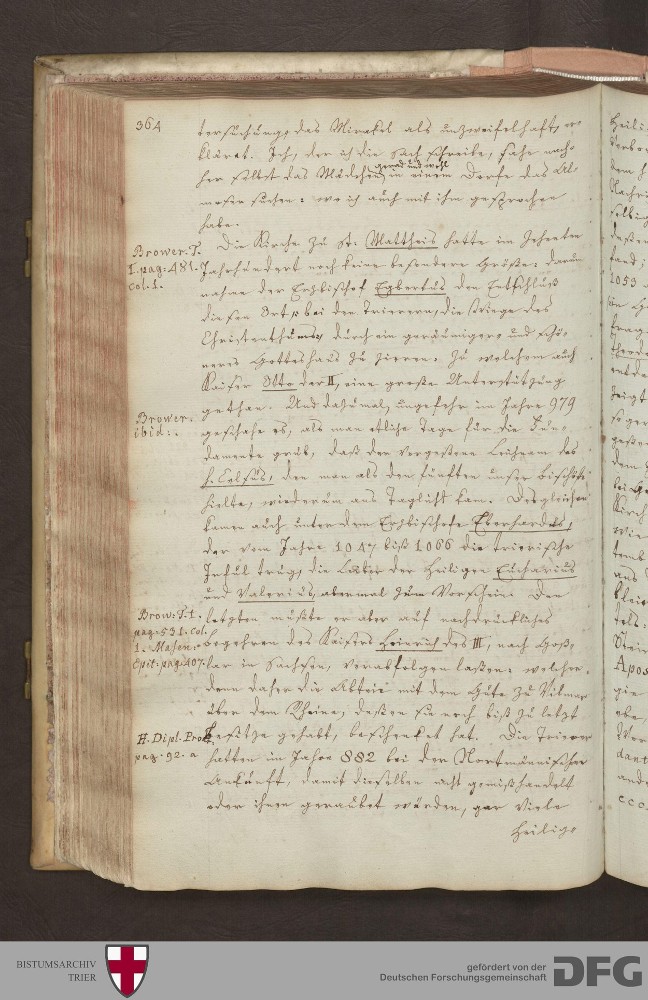 364
tersuchung, das Mirakel als unzweifelhaft, er-
kläret. Ich, der ich die Sach schreibe, sahe nach-
her selbst das Mädchen, gerad und wohl in einem Dorfe das Al-
mosen suchen: wo ich auch mit ihm gesprochen
habe.
Brower. T.
I. pag: 481.
col. 1.
Die Kirche zu St: Mattheis hatte im Zehenten
Jahrhundert noch keine besondere Größe: darum
nahme der Erzbischof Egbertus den Entschluß
diesen Ort, bei den Trierern, die Wiege des
Christenthums, durch ein geräumiger, und schö-
neres Gotteshaus zu zieren: zu welchem auch
Kaiser Otto der II, eine große Unterstützung
gethan. Und dazumal, ungefehr im Jahre 979
Brower.
ibid:.
geschahe es, als man etliche Tage für die Fun-
damente grub, daß der vergessene Leichnam des
h. Celsus, den man als den fünften unser Bischöfe
hielte, wiederum ans Taglicht kam. Desgleichen
kamen auch unter dem Erzbischofe Eberhardus,
der vom Jahre 1047 biß 1066 die trierische
Inful trug, die Leiber der Heiligen Eucharius
und Valerius, abermal zum Vorschein. Den
Brow: T. 1.
pag: 531. col.
1. Masen:
Epit: pag: 407.
letzten mußte er aber auf nachdrückliches
begehren des Kaisers Heinrich des III, nach Goß-
lar in Sachsen, verabfolgen laßen: welcher
denn daher die Abtei mit dem Gute zu Vilmar
über dem Rheine, deßen sie noch biß zu letzt
H. Dipl. Prod.
pag. 92. a
besitze gehabt, beschenket hat. Die Trierer
hatten im Jahre 882 bei der Nortmännischen
Ankunft, damit dieselben nicht gemißhandelt
oder ihnen geraubet würden, gar viele
Heilige
1053
Apos
BISTUMSARCHIV
TRIER
gefördert von der
Deutschen Forschungsgemeinschaft
DFG